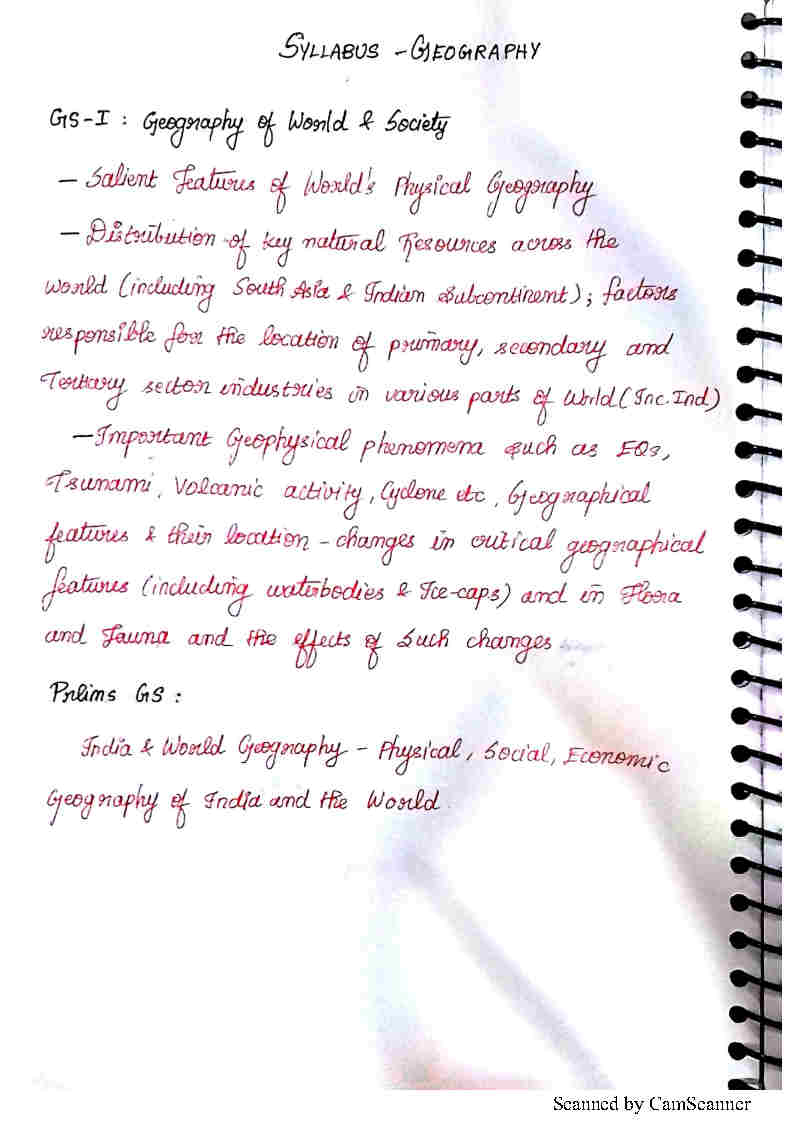 SYLLABUS - GEOGRAPHY
GS-I : Geography of World & Society
- Salient Features of World's Physical Geography
- Distribution of key natural Resources across the
world (including South Asia & Indian Subcontinent); factors
responsible for the location of primary, secondary and
Tertiary sector industries in various parts of World (Inc. Ind)
- Important Geophysical phenomena such as EQs,
Tsunami, Volcanic activity, Cyclone etc, Geographical
features & their location - changes in critical geographical
features (including waterbodies & Ice-caps) and in Flora
and Fauna and the effects of such changes
Prelims GS :
India & World Geography - Physical, Social, Economic
Geography of India and the World.
Scanned by CamScanner